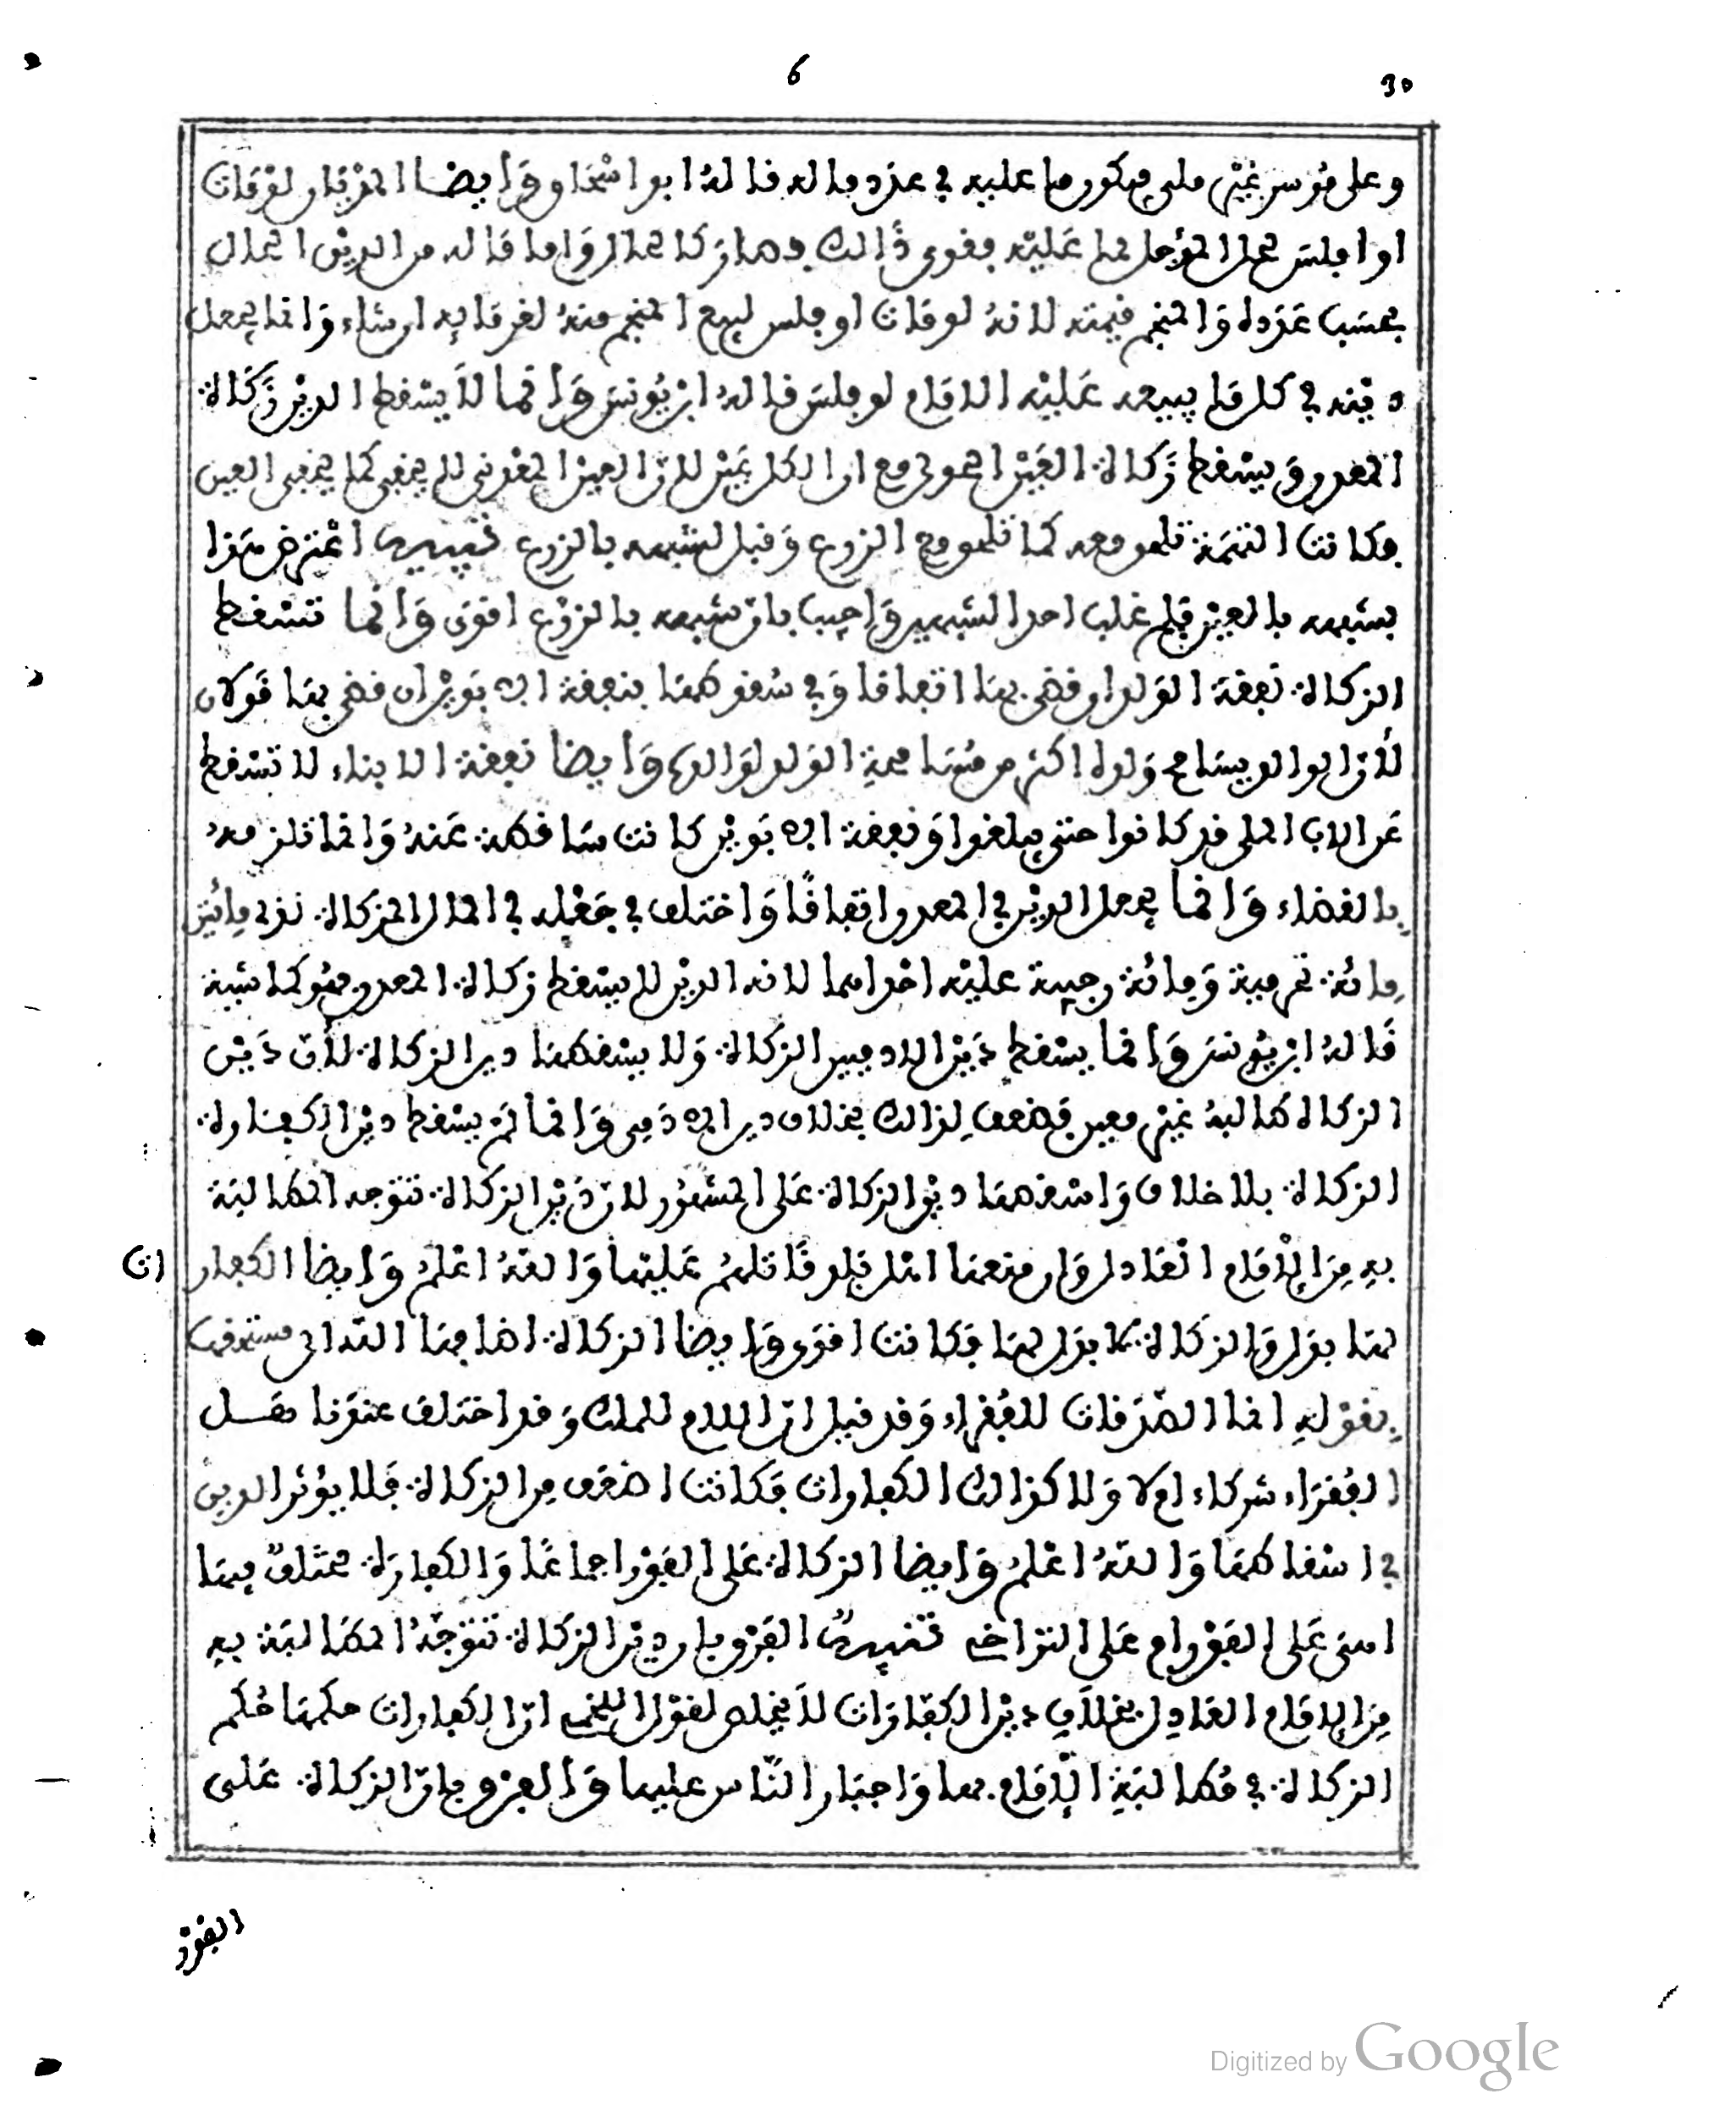 6
30
وعلى موسر غير ملي فيكون ما عليه في عدد ماله قاله ابو اسحاق وايضا المديان لو مات
او افلس حل المؤجل مما عليه فقوي ذالك وصار كالحال واما ماله من الدين الحال
بحسب عدده والمنجم قيمته لانه لو مات او فلس لبيع المنجم منه لغرمائه ان شاء وانما يجعل
دينه في كل ما يبيعه عليه الامام لو فلس قاله ابن يونس وانما لا يسقط الدين زكاة
المعدن ويسقط زكاة العين مع ان الكل عين لان العين المعدني لم يخفى كما يخفى العين
فكانت التنمية تلمو معه كما تلمو مع الزرع وقبل لشبهه بالزرع تنبيه اعترض هذا
بشبهه بالعين فلم غلب احد الشبهين واجيب بان شبهه بالزرع اقوى وانما تسقط
الزكاة نفقة الولد ان قضي بها اتفاقا وفي سقوطها بنفقة ابويْن ان قضي بها قولان
لأن الوالد يسامح ولده اكثر من مسامحة الولد لوالده وايضا نفقة الابناء لا تسقط
عن الاب الملي مذ كانوا حتى يبلغوا ونفقة الابويْن كانت ساقطة عنه وانما تلزمه
بالقضاء وانما يجعل الدين في المعدن اتفاقًا واختلف في جعله في المال المزكاة نذر مائتين
مائة محرمية ومائة رجبية عليه احداهما لانه الدين لا يسقط زكاة المعدن فهو كماشية
قاله ابن يونس وانما يسقط دين الادميين الزكاة ولا يسقطها دين الزكاة لأن دين
الزكاة طالبه غير معين فضعف لذالك بخلاف دين الادمي وانما لم يسقط دين الكفارة
الزكاة بلا خلاف واسقطها دين الزكاة على المشهور لان دين الزكاة تتوجه المطالبة
به من الإمام العادل وان منعها اهل بلد قاتلهم عليها والله اعلم وايضا الكفار (ت)
لها بدل والزكاة لا بدل لها فكانت اقوى وايضا الزكاة اضافها الله الى مستحقيها
بقوله انما الصدقات للفقراء وقد قيل ان اللام للملك وقد اختلف عندنا هل
الفقراء شركاء ام لا ولا كذالك الكفارات فكانت اضعف من الزكاة فلا يؤثر الدين
في اسقاطها والله اعلم وايضا الزكاة على الفور اجماعًا والكفارة مختلف فيها
اهي على الفور ام على التراخي تنبيه الفرق بان دين الزكاة تتوجه المطالبة به
من الامام العادل بخلاف دين الكفارات لا يخلص لقول اللخمي ان الكفارات حكمها حكم
الزكاة في مطالبة الإمام بها واجبار الناس عليها والفرق بان الزكاة على
الفور
Digitized by Google